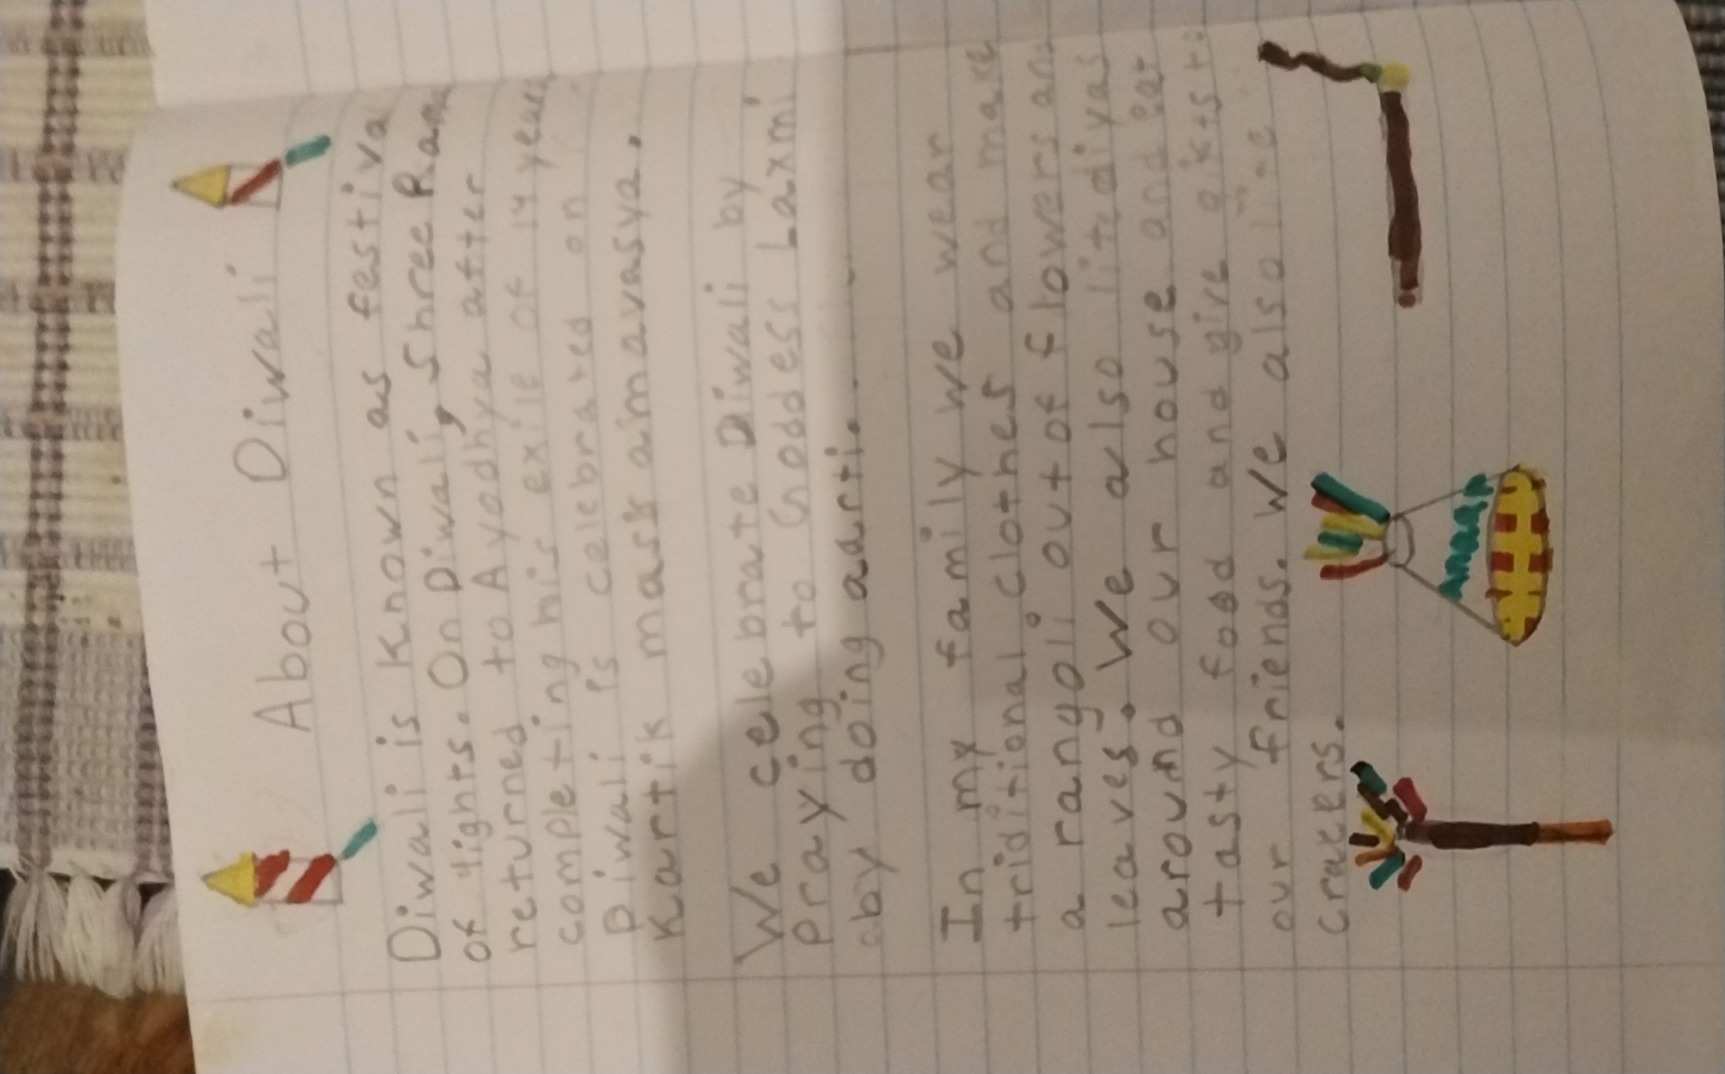 About Diwali
Diwali is known as festiva
of lights. On Diwali, Shree Ram
returned to Ayodhya after
completing his exile of 14 years
Diwali is celebrated on
Kartik mass amavasya.
We celebrate Diwali by
Praying to Goddess Laxmi
by doing aarti.
In my family we wear
triditional clothes and make
a rangoli out of flowers and
leaves. We also lite diyas
around our house and eat
tasty food and give gifts to
our friends. We also
cracers.